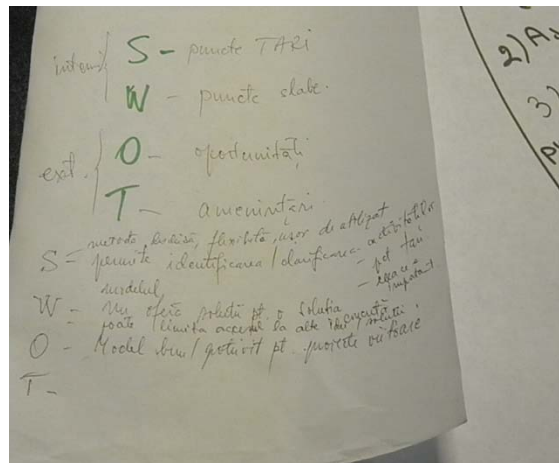 interni
S - puncte TARI
W - puncte slabe.
ext.
O - oportunități
T - amenințări
metodă, flexibilă, ușor de utilizat
S = permite identificarea / clarificarea activităților
- pct tari
modelul
W = Nu oferă soluții pt. o situație
poate limita accesul la alte soluții
O - Model bun / potrivit pt. proiecte viitoare
T -
2) A
3)